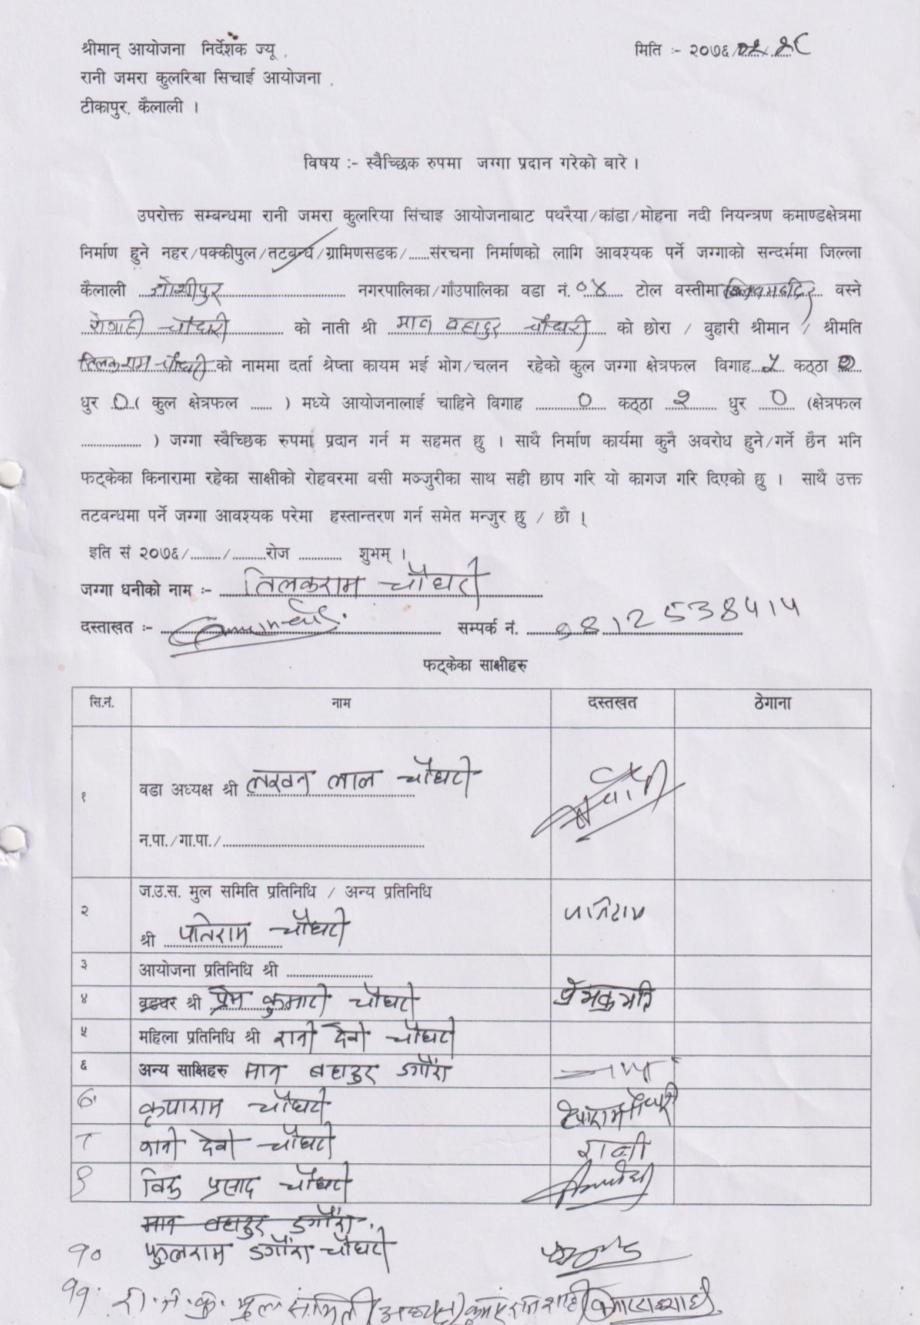 श्रीमान् आयोजना निर्देशक ज्यू, मिति :- २०७६/
रानी जमरा कुलरिया सिंचाई आयोजना,
टीकापुर, कैलाली ।
विषय :- स्वैच्छिक रुपमा जग्गा प्रदान गरेको बारे ।
उपरोक्त सम्बन्धमा रानी जमरा कुलरिया सिंचाइ आयोजनाबाट पथरैया/कांडा/मोहना नदी नियन्त्रण कमाण्डक्षेत्रमा
निर्माण हुने नहर/पक्कीपुल/तटबन्ध/ग्रामिणसडक/......संरचना निर्माणको लागि आवश्यक पर्ने जग्गाको सन्दर्भमा जिल्ला
कैलाली जोशीपुर नगरपालिका/गाँउपालिका वडा नं. ०४ टोल वस्तीमा वस्ने
चौधरी को नाती श्री मान बहादुर चौधरी को छोरा / बुहारी श्रीमान / श्रीमति
तिलकराम चौधरी को नाममा दर्ता श्रेष्ता कायम भई भोग/चलन रहेको कुल जग्गा क्षेत्रफल विगाह कठ्ठा
धुर 0 ( कुल क्षेत्रफल ...... ) मध्ये आयोजनालाई चाहिने विगाह 0 कठ्ठा २ धुर 0 (क्षेत्रफल
.................. ) जग्गा स्वैच्छिक रुपमा प्रदान गर्न म सहमत छु । साथै निर्माण कार्यमा कुनै अवरोध हुने/गर्ने छैन भनि
फट्केका किनारामा रहेका साक्षीको रोहवरमा वसी मञ्जुरीका साथ सही छाप गरि यो कागज गरि दिएको छु । साथै उक्त
तटवन्धमा पर्ने जग्गा आवश्यक परेमा हस्तान्तरण गर्न समेत मन्जुर छु / छौ ।
इति सं २०७६/........./.........रोज ............ शुभम् ।
जग्गा धनीको नाम :- तिलकराम चौधरी
दस्ताखत :- सम्पर्क नं. 9812538414
फट्केका साक्षीहरु
सि.नं. नाम दस्तखत ठेगाना
१ वडा अध्यक्ष श्री लखन लाल चौधरी
न.पा./गा.पा./..................................................
२ ज.उ.स. मुल समिति प्रतिनिधि / अन्य प्रतिनिधि
श्री पतिराम चौधरी पतिराम
३ आयोजना प्रतिनिधि श्री .....................
४ बडघर श्री प्रेम कुमारी चौधरी
५ महिला प्रतिनिधि श्री रानी देवी चौधरी
६ अन्य साक्षिहरु मान बहादुर डगौरा
७ कृपाराम चौधरी
८ रानी देवी चौधरी रानी
९ प्रसाद चौधरी
मान बहादुर डगौरा
१० फुलराम डगौरा चौधरी
११. रा. ज. कु. मुल समिति (अध्यक्ष)